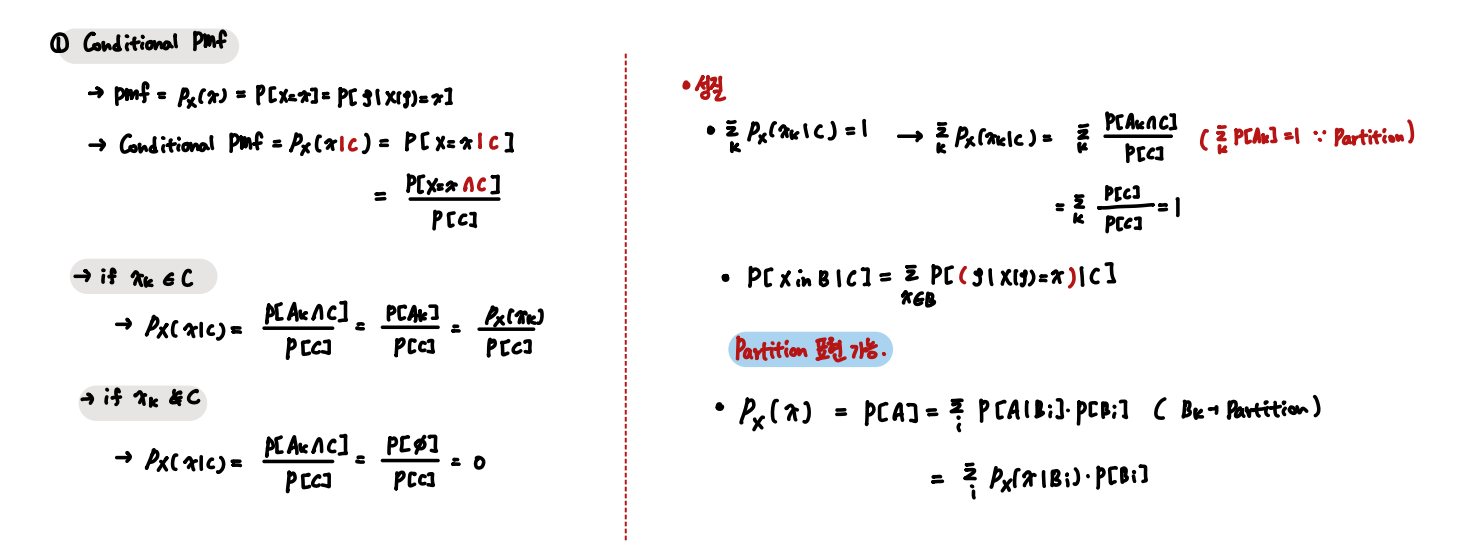 ① Conditional pmf
→ pmf = Pₓ(x) = P[X=x] = P[ζ | X(ζ)=x]
→ Conditional pmf = Pₓ(x|C) = P[X=x|C]
= P[X=x∩C] / P[C]
→ if xₖ ∈ C
→ Pₓ(x|C) = P[Aₖ∩C] / P[C] = P[Aₖ] / P[C] = Pₓ(xₖ) / P[C]
→ if xₖ ∉ C
→ Pₓ(x|C) = P[Aₖ∩C] / P[C] = P[∅] / P[C] = 0
• 성질
• Σₖ Pₓ(xₖ|C) = 1 → Σₖ Pₓ(xₖ|C) = Σₖ P[Aₖ∩C] / P[C] (Σₖ P[Aₖ] = 1 ∵ Partition)
= Σₖ P[C] / P[C] = 1
• P[X in B | C] = Σ_{x∈B} P[(ζ | X(ζ)=x) | C]
Partition 표현 가능.
• Pₓ(x) = P[A] = Σᵢ P[A|Bᵢ]·P[Bᵢ] (Bₖ → Partition)
= Σᵢ Pₓ(x|Bᵢ)·P[Bᵢ]